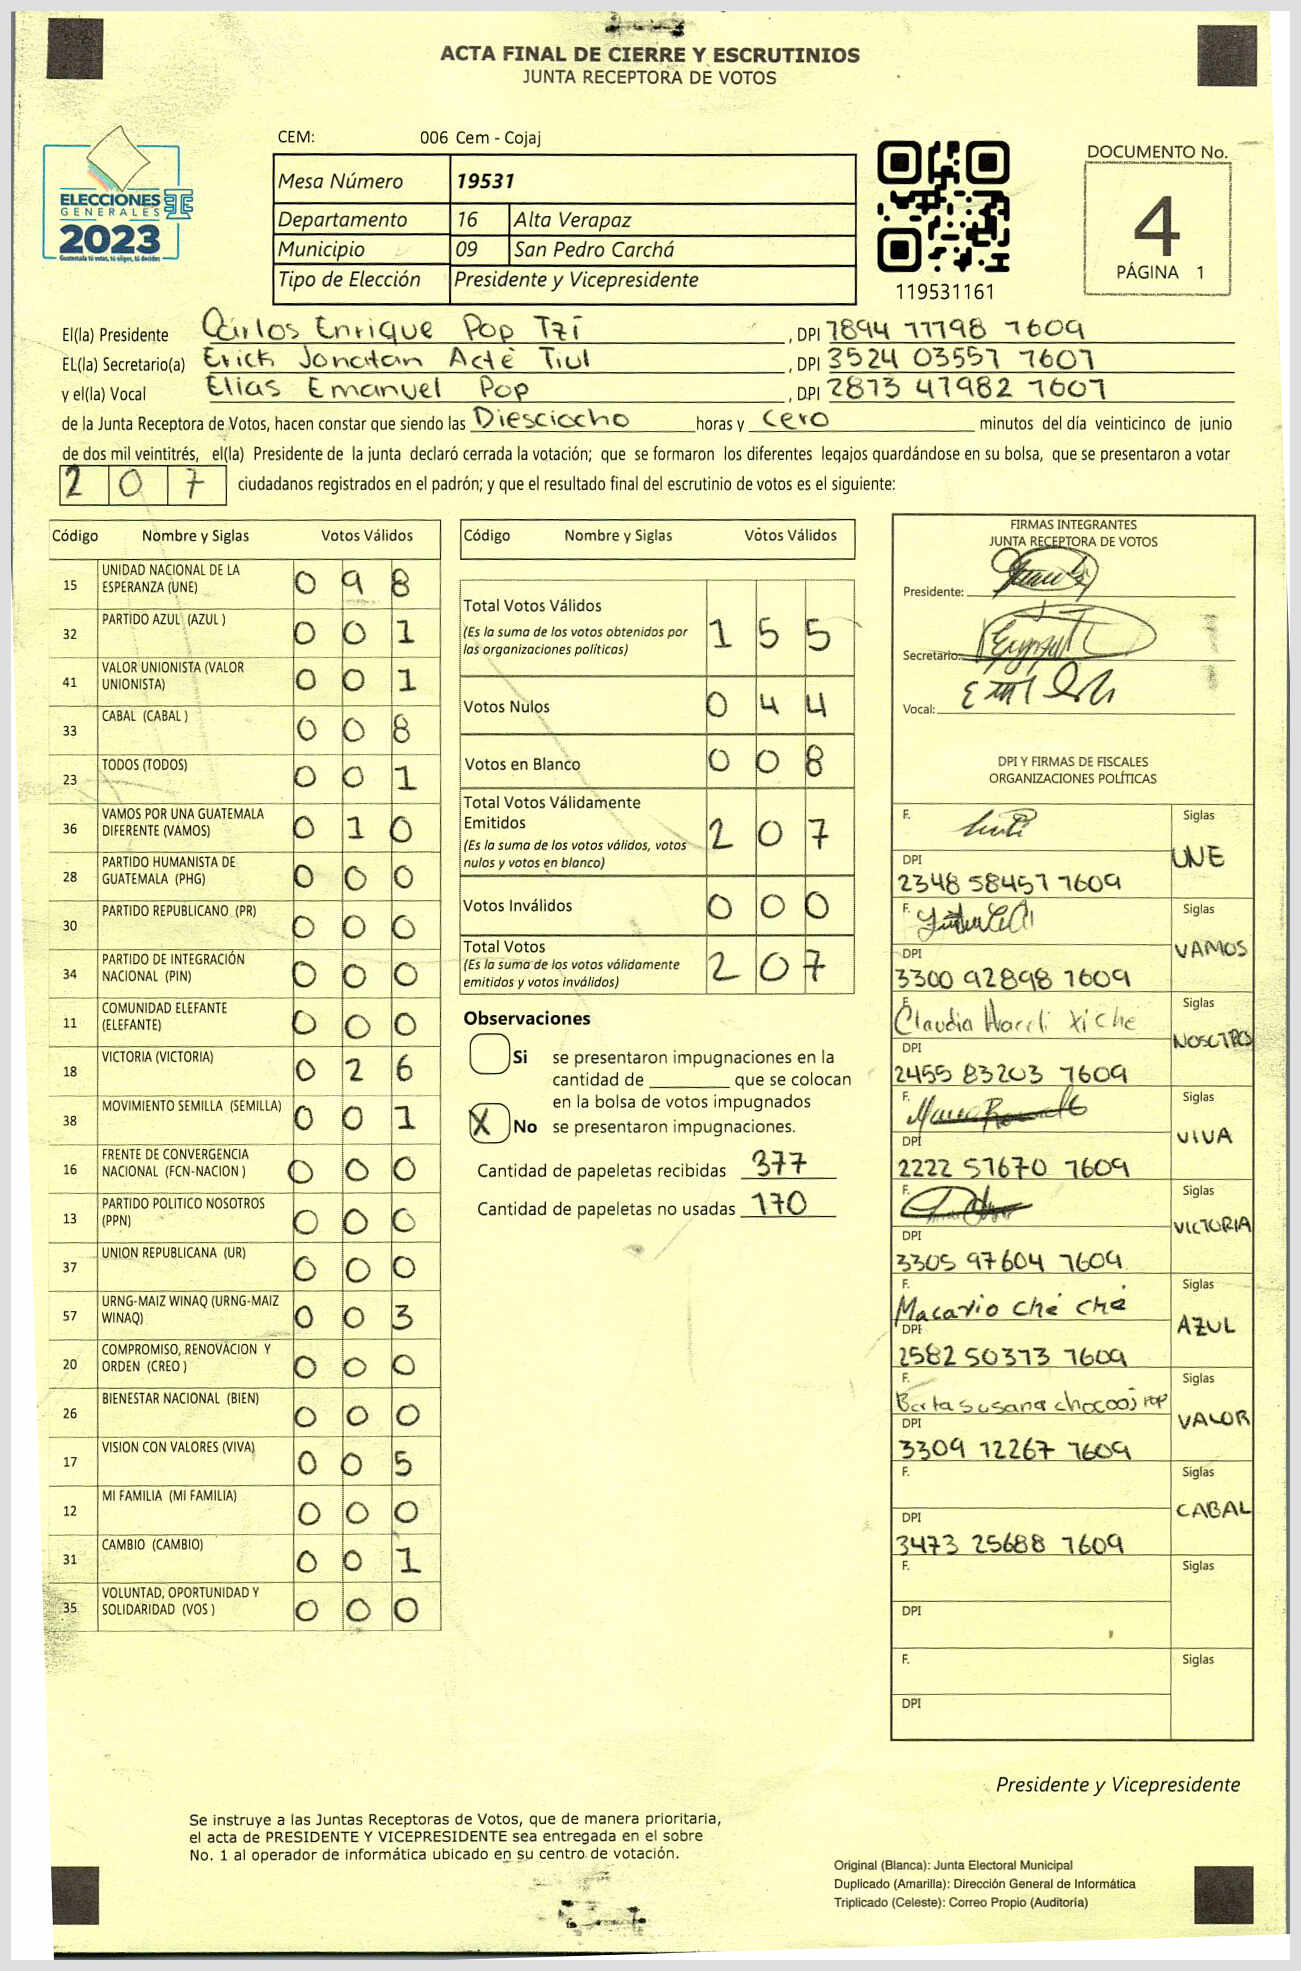 ACTA FINAL DE CIERRE Y ESCRUTINIOS
JUNTA RECEPTORA DE VOTOS
ELECCIONES
GENERALES
2023
Guatemala tú votas, tú eliges, tú decides
CEM: 006 Cem - Cojaj
Mesa Número 19531
Departamento 16 Alta Verapaz
Municipio 09 San Pedro Carchá
Tipo de Elección Presidente y Vicepresidente
119531161
DOCUMENTO No.
4
PÁGINA 1
El(la) Presidente Carlos Enrique Pop Tzí , DPI 1894 11198 1609
EL(la) Secretario(a) Erick Jonatan Acté Tiul , DPI 3524 03557 1607
y el(la) Vocal Elias Emanuel Pop , DPI 2873 41982 1607
de la Junta Receptora de Votos, hacen constar que siendo las Diesciocho horas y cero minutos del día veinticinco de junio
de dos mil veintitrés, el(la) Presidente de la junta declaró cerrada la votación; que se formaron los diferentes legajos guardándose en su bolsa, que se presentaron a votar
2 0 7 ciudadanos registrados en el padrón; y que el resultado final del escrutinio de votos es el siguiente:
Código Nombre y Siglas Votos Válidos
15 UNIDAD NACIONAL DE LA ESPERANZA (UNE) 0 9 8
32 PARTIDO AZUL (AZUL ) 0 0 1
41 VALOR UNIONISTA (VALOR UNIONISTA) 0 0 1
33 CABAL (CABAL ) 0 0 8
23 TODOS (TODOS) 0 0 1
36 VAMOS POR UNA GUATEMALA DIFERENTE (VAMOS) 0 1 0
28 PARTIDO HUMANISTA DE GUATEMALA (PHG) 0 0 0
30 PARTIDO REPUBLICANO (PR) 0 0 0
34 PARTIDO DE INTEGRACIÓN NACIONAL (PIN) 0 0 0
11 COMUNIDAD ELEFANTE (ELEFANTE) 0 0 0
18 VICTORIA (VICTORIA) 0 2 6
38 MOVIMIENTO SEMILLA (SEMILLA) 0 0 1
16 FRENTE DE CONVERGENCIA NACIONAL (FCN-NACION ) 0 0 0
13 PARTIDO POLITICO NOSOTROS (PPN) 0 0 0
37 UNION REPUBLICANA (UR) 0 0 0
57 URNG-MAIZ WINAQ (URNG-MAIZ WINAQ) 0 0 3
20 COMPROMISO, RENOVACION Y ORDEN (CREO ) 0 0 0
26 BIENESTAR NACIONAL (BIEN) 0 0 0
17 VISION CON VALORES (VIVA) 0 0 5
12 MI FAMILIA (MI FAMILIA) 0 0 0
31 CAMBIO (CAMBIO) 0 0 1
35 VOLUNTAD, OPORTUNIDAD Y SOLIDARIDAD (VOS ) 0 0 0
Código Nombre y Siglas Votos Válidos
Total Votos Válidos 1 5 5
(Es la suma de los votos obtenidos por
las organizaciones políticas)
Votos Nulos 0 4 4
Votos en Blanco 0 0 8
Total Votos Válidamente
Emitidos 2 0 7
(Es la suma de los votos válidos, votos
nulos y votos en blanco)
Votos Inválidos 0 0 0
Total Votos 2 0 7
(Es la suma de los votos válidamente
emitidos y votos inválidos)
Observaciones
Si se presentaron impugnaciones en la
cantidad de ________ que se colocan
en la bolsa de votos impugnados
X No se presentaron impugnaciones.
Cantidad de papeletas recibidas 377
Cantidad de papeletas no usadas 170
FIRMAS INTEGRANTES
JUNTA RECEPTORA DE VOTOS
Presidente:
Secretario:
Vocal:
DPI Y FIRMAS DE FISCALES
ORGANIZACIONES POLÍTICAS
F. Siglas
UNE
DPI
2348 58457 1609
F. Siglas
VAMOS
DPI
3300 92898 1609
F. Siglas
Claudia Xiche
NOSOTROS
DPI
2455 83203 1609
F. Siglas
VIVA
DPI
2222 51670 1609
F. Siglas
VICTORIA
DPI
3305 97604 1609
F. Siglas
Macario Ché Ché
AZUL
DPI
2582 50373 1609
F. Siglas
Berta Susana chocooj POP
VALOR
DPI
3309 12267 1609
F. Siglas
CABAL
DPI
3473 25688 1609
F. Siglas
DPI
F. Siglas
DPI
Presidente y Vicepresidente
Se instruye a las Juntas Receptoras de Votos, que de manera prioritaria,
el acta de PRESIDENTE Y VICEPRESIDENTE sea entregada en el sobre
No. 1 al operador de informática ubicado en su centro de votación.
Original (Blanca): Junta Electoral Municipal
Duplicado (Amarilla): Dirección General de Informática
Triplicado (Celeste): Correo Propio (Auditoría)